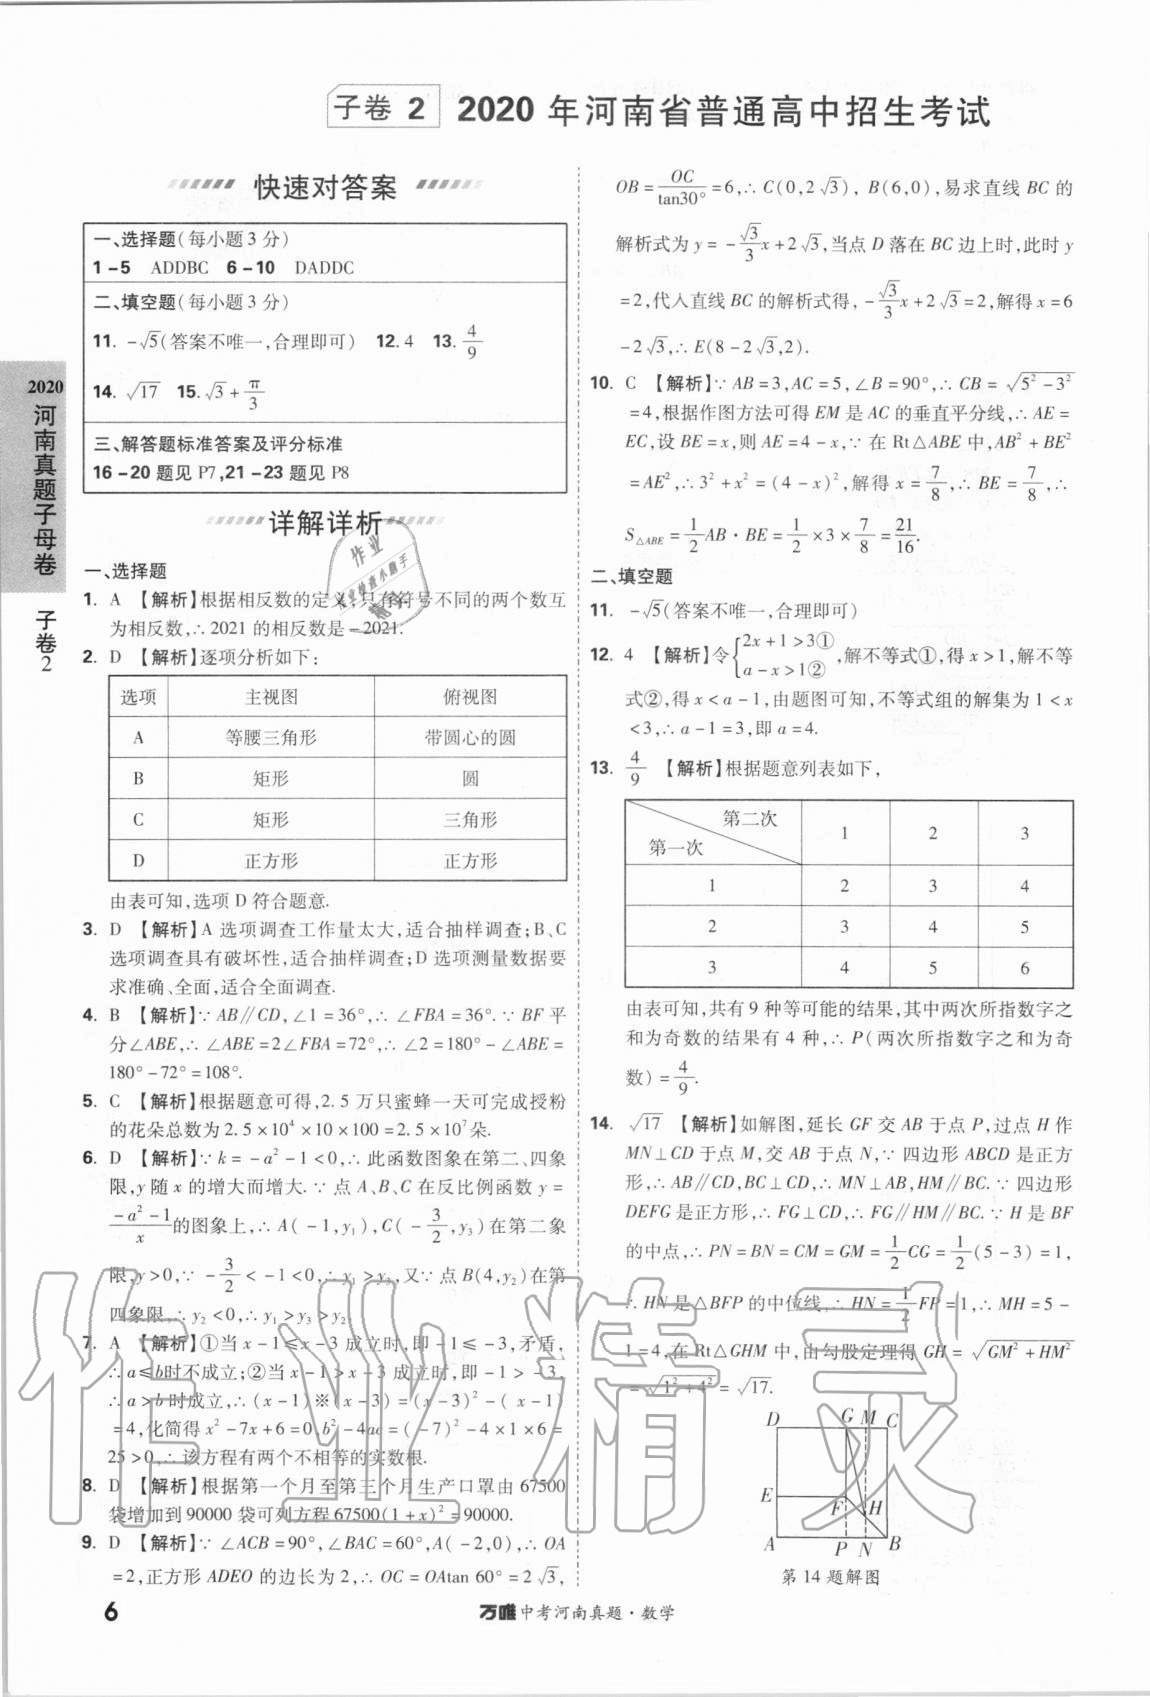 子卷 2 2020 年河南省普通高中招生考试
快速对答案
一、选择题(每小题 3 分)
1-5 ADDBC 6-10 DADDC
二、填空题(每小题 3 分)
11. -√5(答案不唯一,合理即可) 12. 4 13. 4/9
14. √17 15. √3+π/3
三、解答题标准答案及评分标准
16-20 题见 P7,21-23 题见 P8
详解详析
一、选择题
1. A 【解析】根据相反数的定义,只有符号不同的两个数互
为相反数,∴ 2021 的相反数是-2021.
2. D 【解析】逐项分析如下:
选项 主视图 俯视图
A 等腰三角形 带圆心的圆
B 矩形 圆
C 矩形 三角形
D 正方形 正方形
由表可知,选项 D 符合题意.
3. D 【解析】A 选项调查工作量太大,适合抽样调查;B、C
选项调查具有破坏性,适合抽样调查;D 选项测量数据要
求准确、全面,适合全面调查.
4. B 【解析】∵ AB∥CD,∠1=36°,∴ ∠FBA=36°.∵ BF 平
分∠ABE,∴ ∠ABE=2∠FBA=72°,∴ ∠2=180°-∠ABE=
180°-72°=108°.
5. C 【解析】根据题意可得,2.5 万只蜜蜂一天可完成授粉
的花朵总数为 2.5×10⁴×10×100=2.5×10⁷朵.
6. D 【解析】∵ k=-a²-1<0,∴ 此函数图象在第二、四象
限,y 随 x 的增大而增大.∵ 点 A、B、C 在反比例函数 y=
(-a²-1)/x 的图象上,∴ A(-1,y₁),C(-3/2,y₃)在第二象
限,y>0,∵ -3/2<-1<0,∴ y₁>y₃,又∵ 点 B(4,y₂)在第
四象限,∴ y₂<0,∴ y₁>y₃>y₂.
7. A 【解析】①当 x-1≤x-3 成立时,即-1≤-3,矛盾,
∴ a≤b时不成立;②当 x-1>x-3 成立时,即-1>-3,
∴ a>b 时成立,∴ (x-1)※(x-3)=(x-3)²-(x-1)
=4,化简得 x²-7x+6=0,b²-4ac=(-7)²-4×1×6=
25>0,∴ 该方程有两个不相等的实数根.
8. D 【解析】根据第一个月至第三个月生产口罩由 67500
袋增加到 90000 袋可列方程 67500(1+x)²=90000.
9. D 【解析】∵ ∠ACB=90°,∠BAC=60°,A(-2,0),∴ OA
=2,正方形 ADEO 的边长为 2,∴ OC=OAtan 60°=2√3,
OB=OC/tan30°=6,∴ C(0,2√3),B(6,0),易求直线 BC 的
解析式为 y=-√3/3x+2√3,当点 D 落在 BC 边上时,此时 y
=2,代入直线 BC 的解析式得,-√3/3x+2√3=2,解得 x=6
-2√3,∴ E(8-2√3,2).
10. C 【解析】∵ AB=3,AC=5,∠B=90°,∴ CB=√(5²-3²)
=4,根据作图方法可得 EM 是 AC 的垂直平分线,∴ AE=
EC,设 BE=x,则 AE=4-x,∵ 在 Rt△ABE 中,AB²+BE²
=AE²,∴ 3²+x²=(4-x)²,解得 x=7/8,∴ BE=7/8,∴
S△ABE=1/2AB·BE=1/2×3×7/8=21/16.
二、填空题
11. -√5(答案不唯一,合理即可)
12. 4 【解析】令{2x+1>3① a-x>1②,解不等式①,得 x>1,解不等
式②,得 x<a-1,由题图可知,不等式组的解集为 1<x
<3,∴ a-1=3,即 a=4.
13. 4/9 【解析】根据题意列表如下,
第二次 第一次 1 2 3
1 2 3 4
2 3 4 5
3 4 5 6
由表可知,共有 9 种等可能的结果,其中两次所指数字之
和为奇数的结果有 4 种,∴ P(两次所指数字之和为奇
数)=4/9.
14. √17 【解析】如解图,延长 GF 交 AB 于点 P,过点 H 作
MN⊥CD 于点 M,交 AB 于点 N,∵ 四边形 ABCD 是正方
形,∴ AB∥CD,BC⊥CD,∴ MN⊥AB,HM∥BC.∵ 四边形
DEFG 是正方形,∴ FG⊥CD,∴ FG∥HM∥BC.∵ H 是 BF
的中点,∴ PN=BN=CM=GM=1/2CG=1/2(5-3)=1,
∴ HN 是△BFP 的中位线,∴ HN=1/2FP=1,∴ MH=5-
1=4,在 Rt△GHM 中,由勾股定理得 GH=√(GM²+HM²)
=√(1²+4²)=√17.
D G M C
E F H
A P N B
第 14 题解图
2020
河南真题子母卷
子卷2
6 万唯中考河南真题·数学
作业精灵